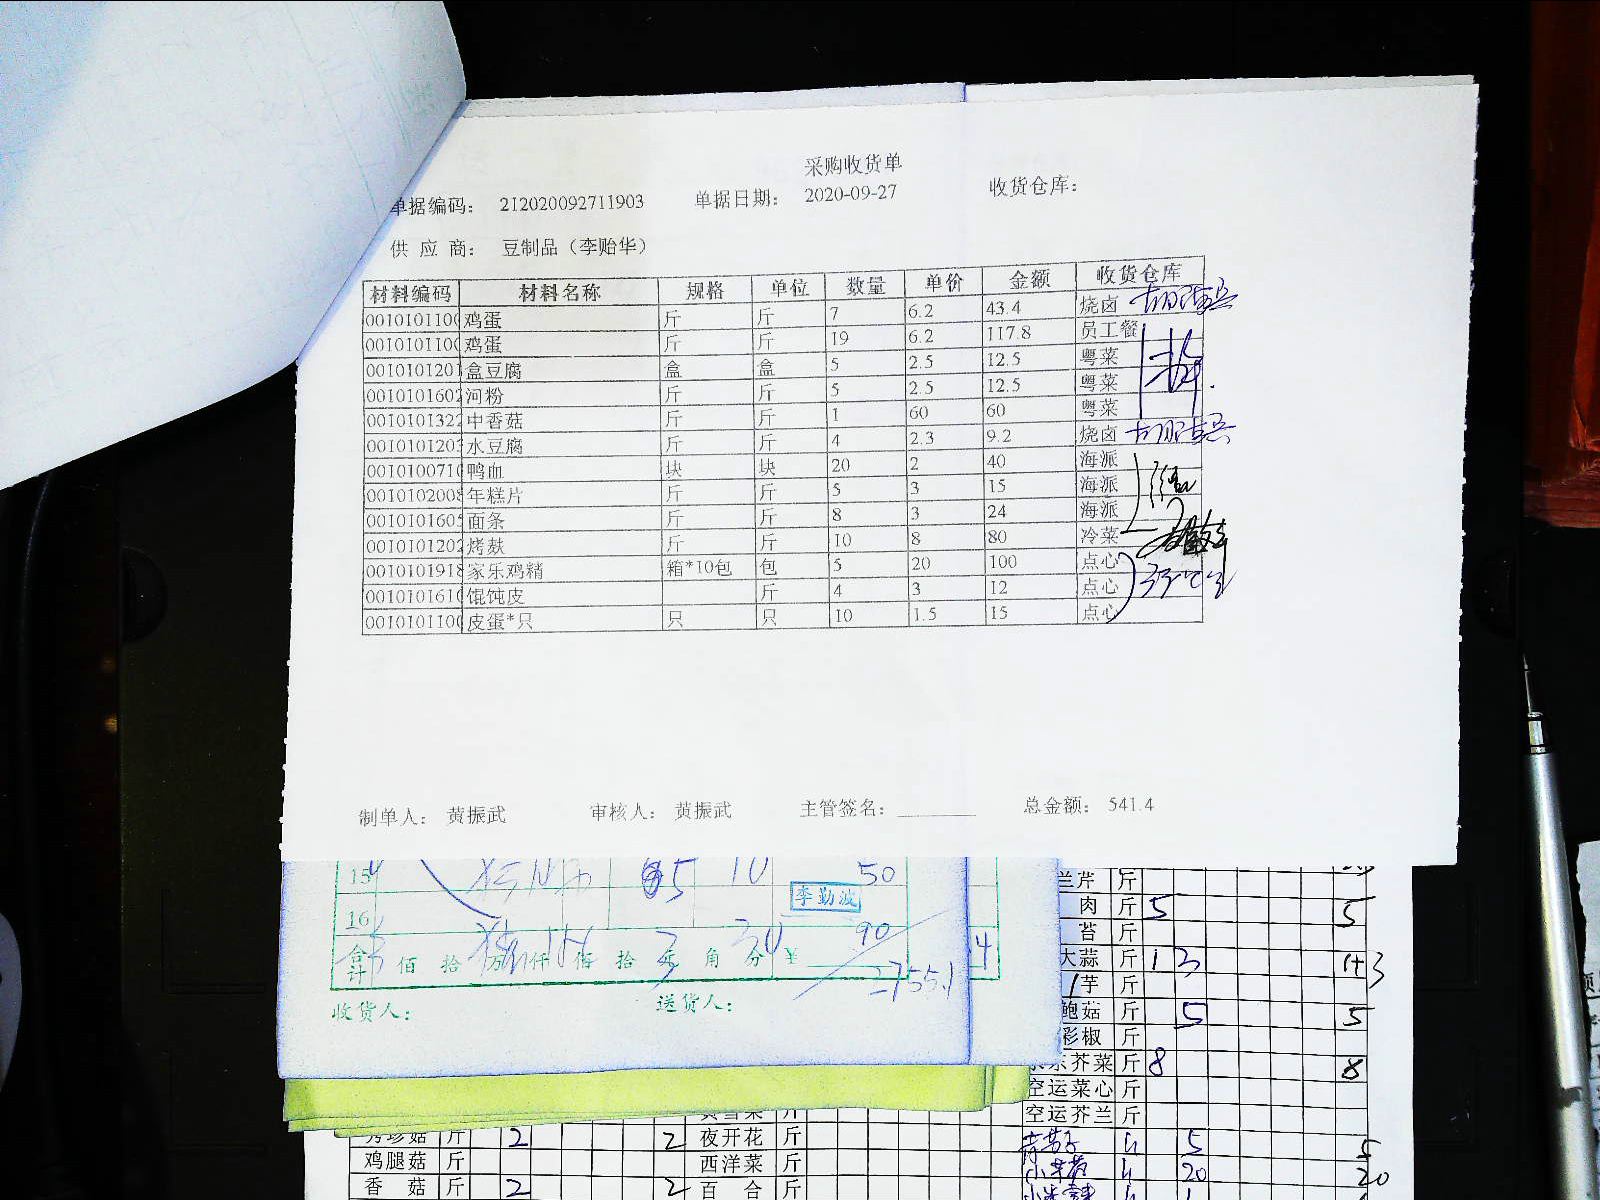 采购收货单
单据编码： 212020092711903 单据日期： 2020-09-27 收货仓库：
供 应 商： 豆制品（李贻华）
材料编码 材料名称 规格 单位 数量 单价 金额 收货仓库
0010101100 鸡蛋 斤 斤 7 6.2 43.4 烧卤
0010101100 鸡蛋 斤 斤 19 6.2 117.8 员工餐
0010101201 盒豆腐 盒 盒 5 2.5 12.5 粤菜
0010101602 河粉 斤 斤 5 2.5 12.5 粤菜
0010101322 中香菇 斤 斤 1 60 60 粤菜
0010101203 水豆腐 斤 斤 4 2.3 9.2 烧卤
0010100710 鸭血 块 块 20 2 40 海派
0010102008 年糕片 斤 斤 5 3 15 海派
0010101605 面条 斤 斤 8 3 24 海派
0010101202 烤麸 斤 斤 10 8 80 冷菜
0010101918 家乐鸡精 箱*10包 包 5 20 100 点心
0010101610 馄饨皮 斤 4 3 12 点心
0010101100 皮蛋*只 只 只 10 1.5 15 点心
制单人： 黄振武 审核人： 黄振武 主管签名： 总金额： 541.4
15 5 10 50
李勤波
16
合计 佰 拾 万 仟 佰 拾 元 角 分 ¥ 90
2755.1
收货人： 送货人：
兰芹 斤
肉 斤 5 5
苔 斤
大蒜 斤 1 3 1+3
芋 斤
鲍菇 斤 5 5
彩椒 斤
芥菜 斤 8 8
空运菜心 斤
空运芥兰 斤
秀珍菇 斤 2 2 夜开花 斤 5 5
鸡腿菇 斤 西洋菜 斤 20 20
香 菇 斤 2 2 百 合 斤